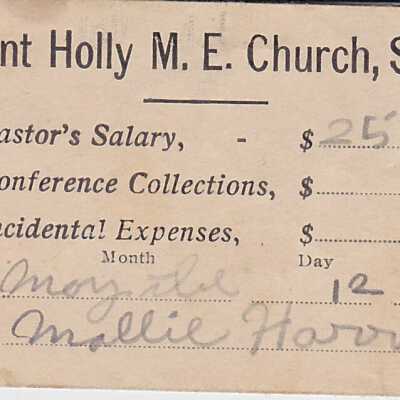 nt Holly M. E. Church, S
astor's Salary, - $ 25
onference Collections, $
ncidental Expenses, $
Month Day
May the 12
Mollie